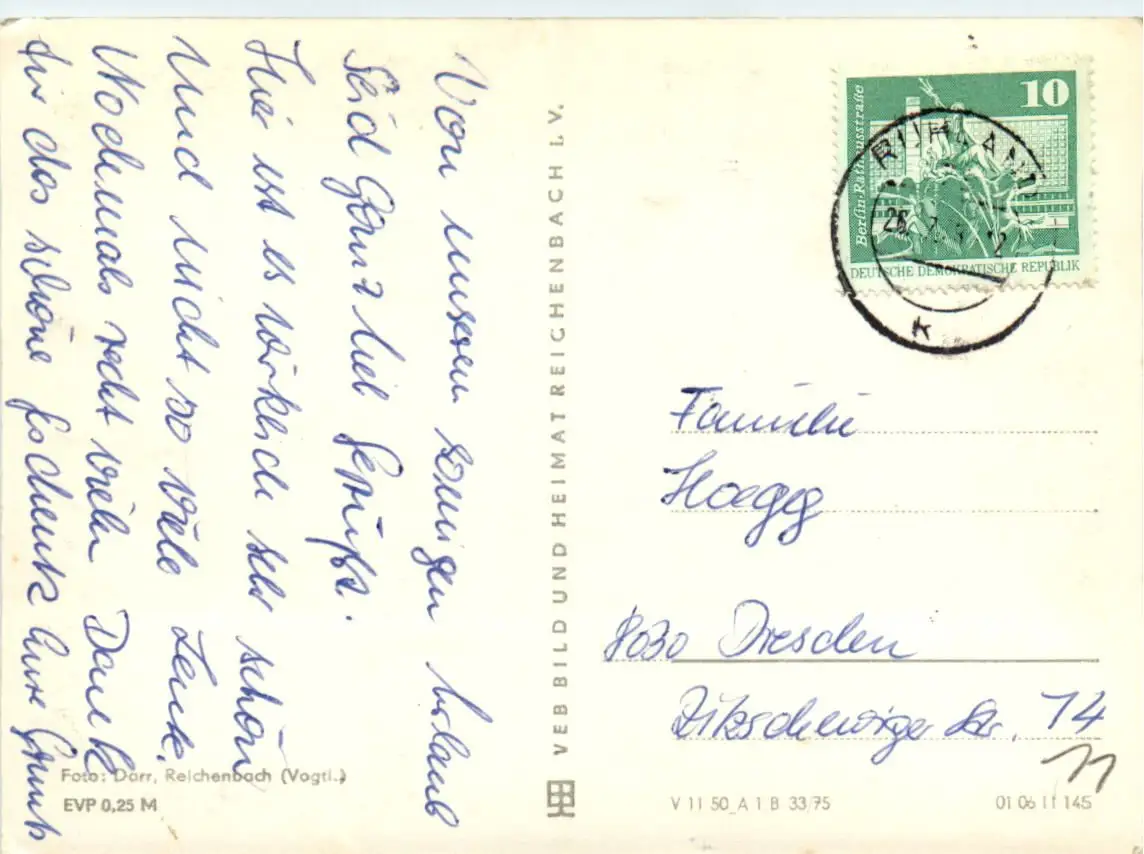 Von unserem sonnigen Urlaub
Seid Ganz lieb Gegrüßt.
Hier ist es wirklich sehr schön
Und nicht so viele Leute.
Nochmals recht vielen Dank
für das schöne Geschenk Eure
VEB BILD UND HEIMAT REICHENBACH I. V.
10
Berlin-Rathausstraße
DEUTSCHE DEMOKRATISCHE REPUBLIK
RUHLAND
26
12
k
Familie
Hoegg
8030 Dresden
Str. 14
11
Foto: Dörr, Reichenbach (Vogtl.)
EVP 0,25 M
V 11 50 A 1 B 33/75
01 06 11 145